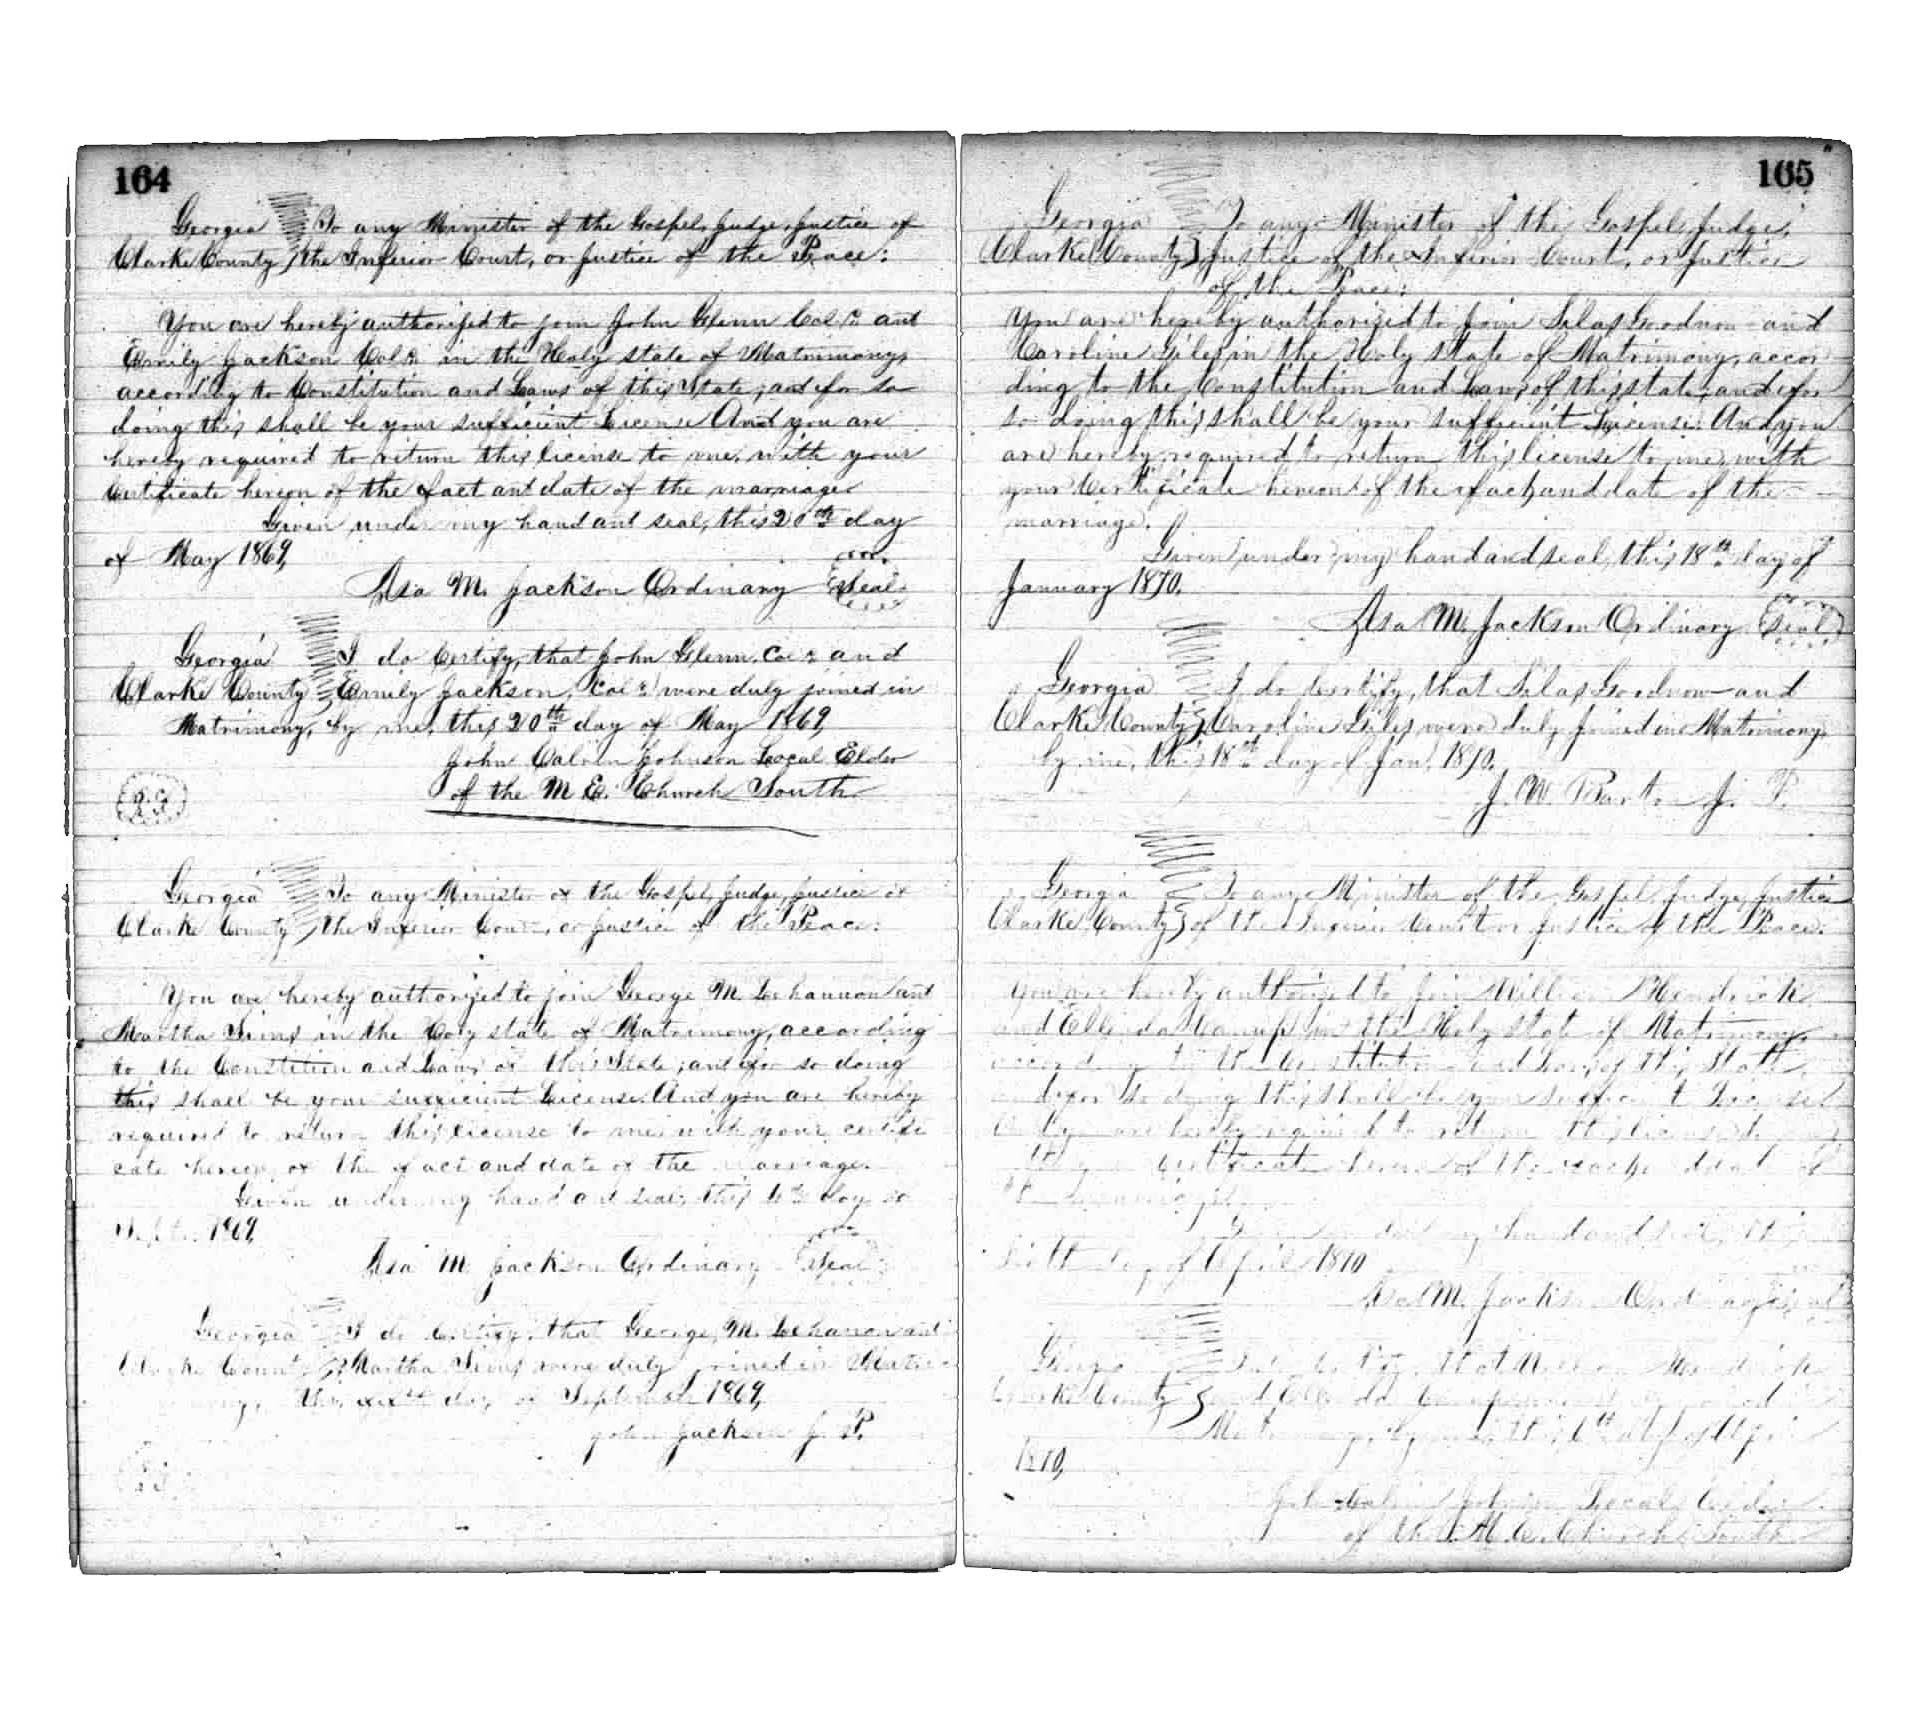 164
Georgia } To any Minister of the Gospel, Judge, Justice of
Clarke County } the Inferior Court, or Justice of the Peace:
You are hereby authorized to join John Glenn Col.d and
Emily Jackson Col.d in the Holy state of Matrimony,
according to Constitution and Laws of this State; and for so
doing this shall be your sufficient License And you are
hereby required to return this license to me, with your
Certificate hereon of the fact and date of the marriage
Given under my hand and seal, this 20th day
of May 1869,
Asa M. Jackson Ordinary Seal
Georgia } I do Certify, that John Glenn, Col.d and
Clarke County } Emily Jackson, Col.d were duly joined in
Matrimony, by me, this 20th day of May 1869,
John Calvin Johnson Local Elder
of the M E. Church South
Georgia } To any Minister of the Gospel, Judge, Justice of
Clarke County } the Inferior Court, or Justice of the Peace:
You are hereby authorized to join George M. Lehannon and
Martha Sims in the Holy state of Matrimony, according
to the Constitution and Laws of this State; and for so doing
this shall be your sufficient License. And you are hereby
required to return this license to me, with your certifi
cate hereon, of the fact and date of the marriage.
Given under my hand and seal, this day of
Sept. 1869,
Asa M. Jackson Ordinary Seal
Georgia } I do Certify, that George, M. Lehannon and
Clarke County } Martha Sims were duly joined in Matri
mony, this day of September 1869,
John Jackson J. P.
165
Georgia } To any Minister of the Gospel, Judge,
Clarke County } Justice of the Inferior Court, or Justice
of the Peace:
You are hereby authorized to join Silas Goodnow and
Caroline Giles in the Holy state of Matrimony, accor
ding to the Constitution and Laws of this state; and for
so doing this shall be your sufficient License. And you
are hereby required to return this license to me, with
your Certificate hereon of the fact and date of the
marriage.
Given under my hand and seal, this 18th day of
January 1870.
Asa M. Jackson Ordinary Seal
Georgia } I do Certify, that Silas Goodnow and
Clarke County } Caroline Giles were duly joined in Matrimony
by me, this 18th day of Jan. 1870.
J. W. Barton J. P.
Georgia } To any Minister of the Gospel, Judge, Justice
Clarke County } of the Inferior Court or Justice of the Peace:
You are hereby authorized to join William Hendrick
and in the Holy state of Matrimony,
according to the Constitution and Laws of this State,
and for so doing this shall be your sufficient License
And you are hereby required to return this license to me
with your Certificate hereon of the fact and date of
the marriage.
Given under my hand and seal, this
day of April 1870
Asa M. Jackson Ordinary Seal
Georgia } I do Certify, that William Hendrick
Clarke County } and were duly joined in
Matrimony, by me, this 6th day of
1870,
John Calvin Johnson Local Elder
of the M. E. Church South